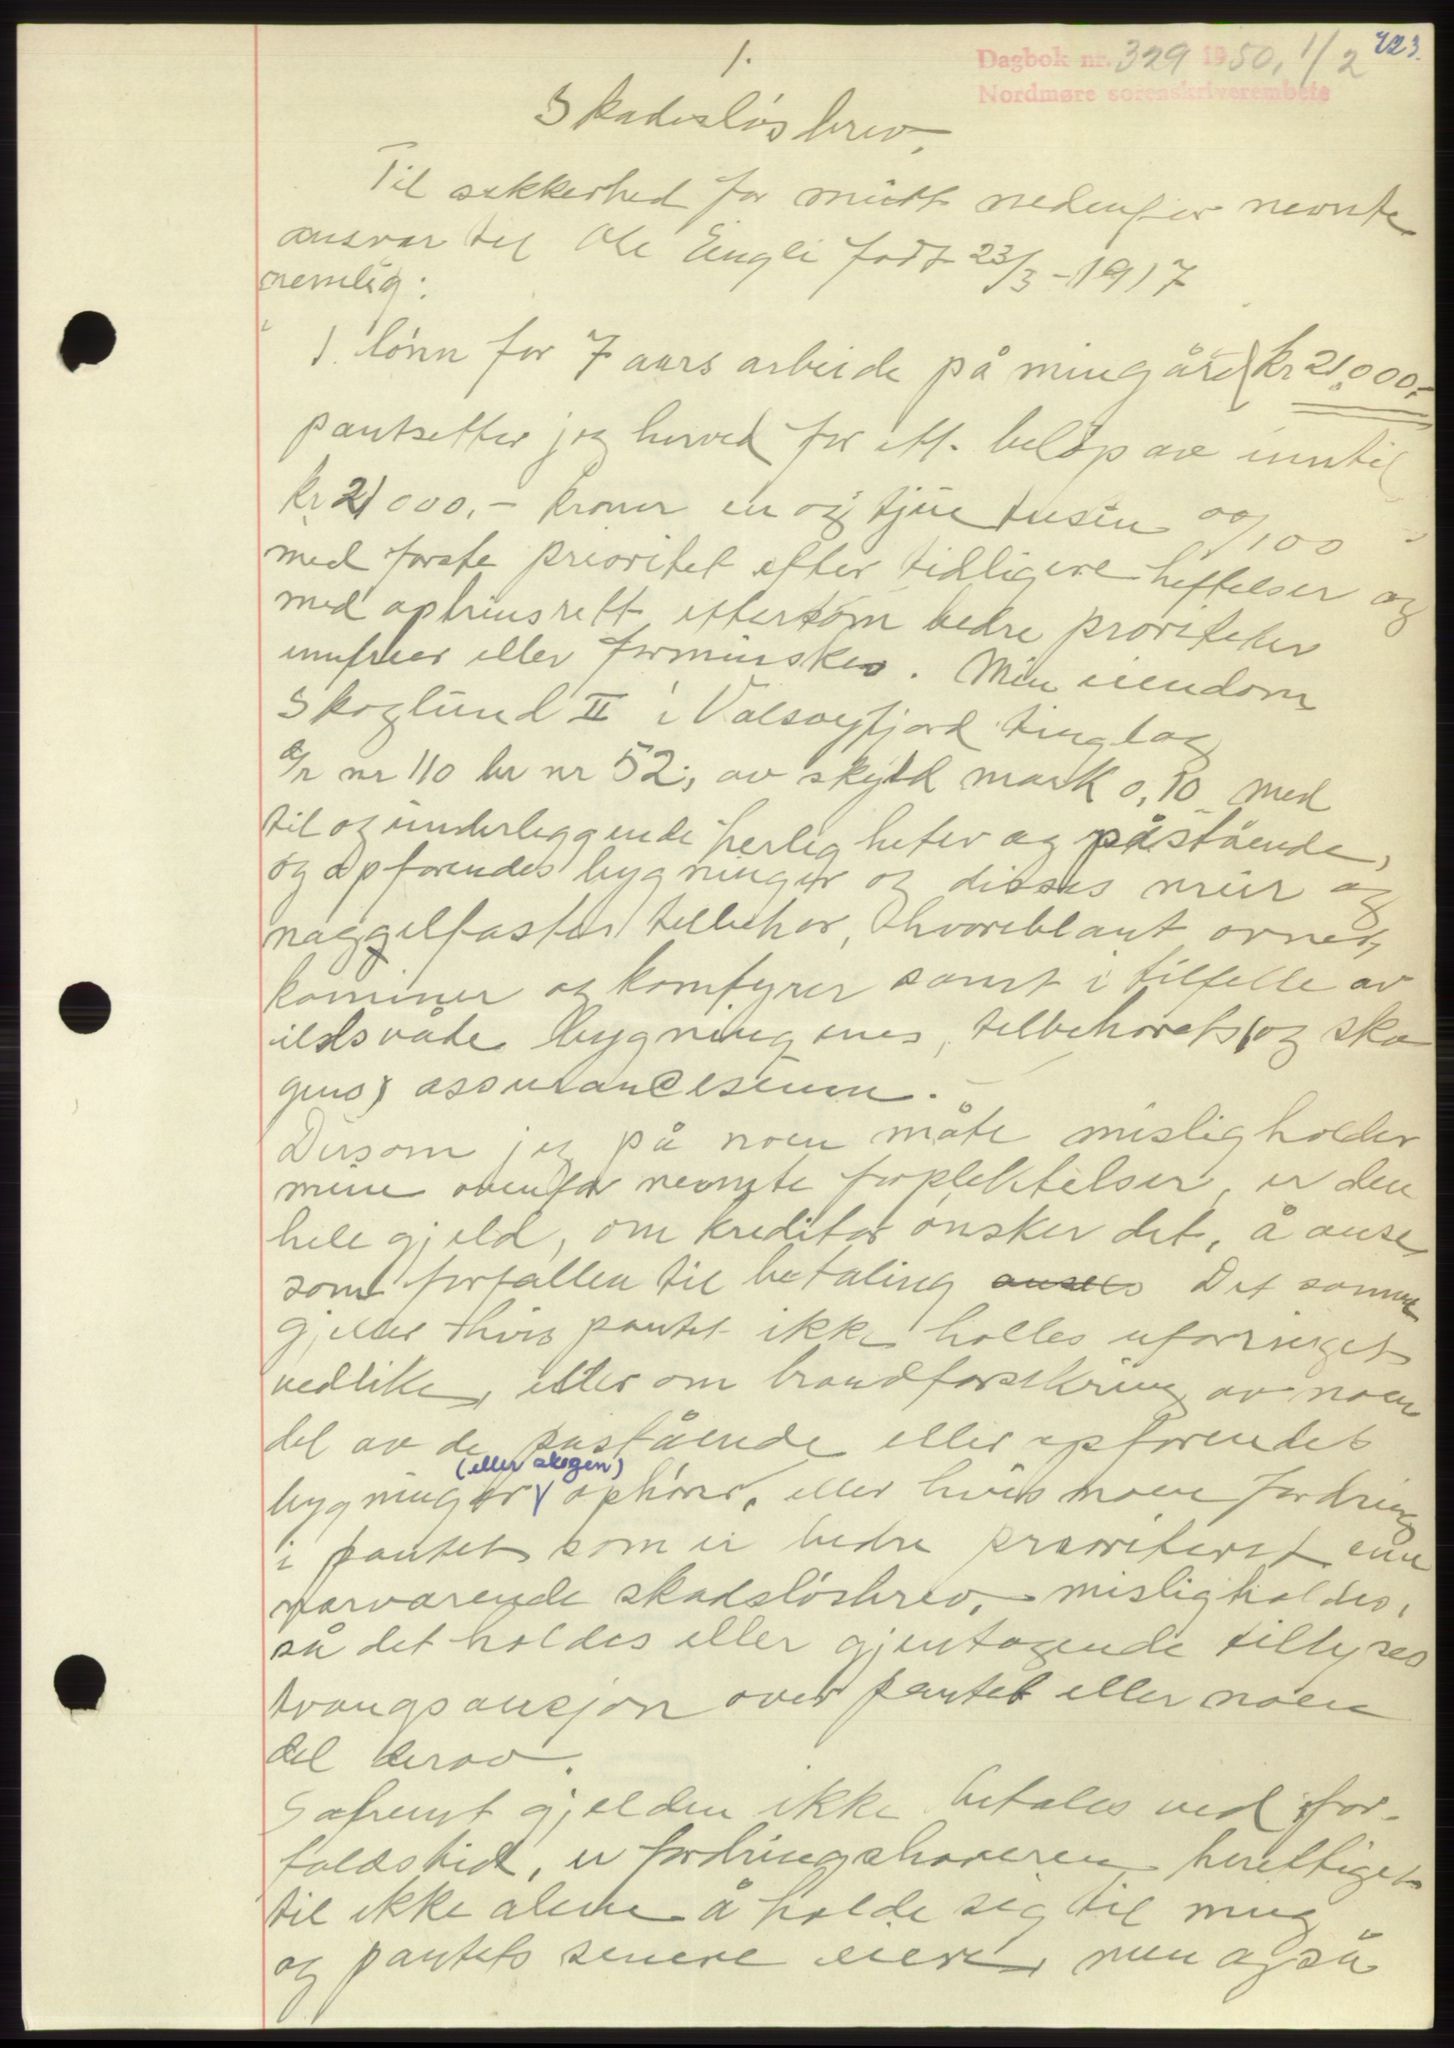 1.
Dagbok nr. 329 1950, 1/2 423.
Nordmøre sorenskriverembete
Skadesløsbrev.
Til sekkerhed for mitt nedenfor nevnte
ansvar til Ole Engli født 23/3-1917
nemlig:
1. lønn for 7 aars arbeide på min gård kr 21.000,-
pantsetter jeg herved for ett beløp av inntil
kr 21000.- kroner en og tjue tusen 00/100
med første prioritet efter tidligere heftelser og
med oprinsrett ettersom bedre proriteter
innfrier eller forminskes. Min eiendom
Skoglund II i Valsøyfjord tinglag
g/r nr 110 br nr 52, av skyld mark 0,10 med
til og underleggende herligheter og påstående,
og opførendes bygninger og disses mur og
naggelfaster tilbehør, hvoriblant ovner,
kominer og komfyrer samt i tilfelle av
ildsvåde bygningenes, tilbehørets (og sko
gens) assurancesum.
Dersom jeg på noen måte misligholder
mine ovenfor nevnte forpliktelser, er den
hele gjeld, om kreditor ønsker det, å anse
som forfallen til betaling anses Det samme
gjeller hvis pantet ikke holles uforringet
vedlike, eller om brandforsikring av noen
del av de påstående eller opførendes
(eller skogen)
bygninger ophører, eller hvis noen fordring
i pantet som er bedre prioritert enn
nærværende skadsløsbrev, misligholdes,
så det holdes eller gjentagende tillyses
tvangsauksjon over pantet eller noen
del derav.
Såfremt gjelden ikke betales ved for-
faldstid, er fordringshaveren berettiget
til ikke alene å holde sig til meg
og pantets senere eiere, men også